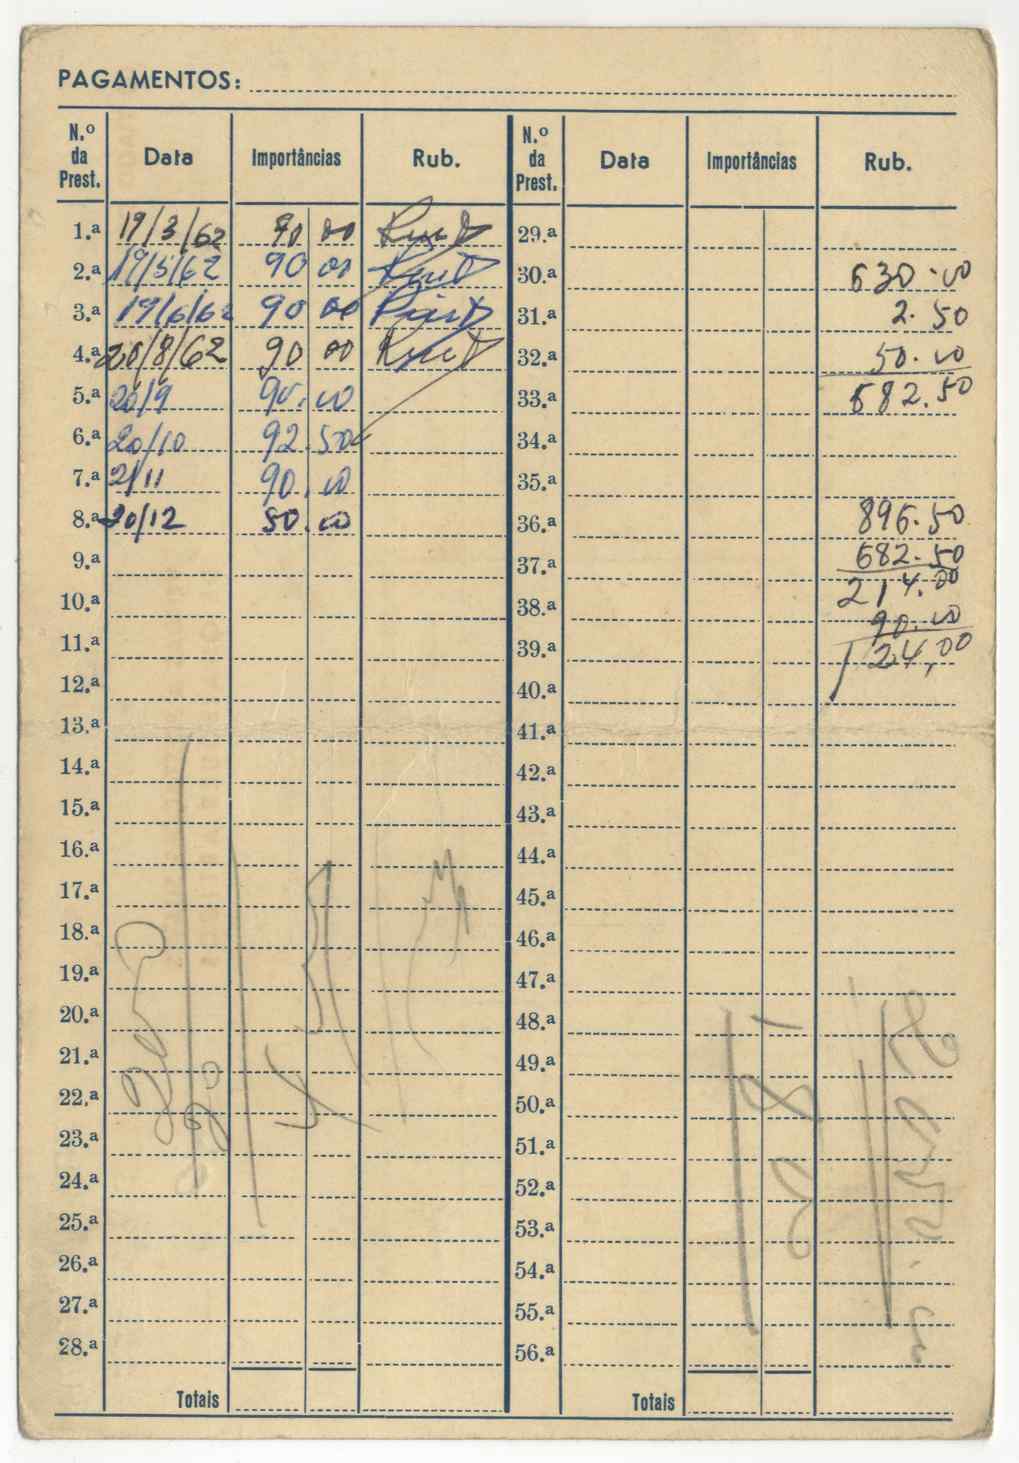 PAGAMENTOS:
N.º da Prest. Data Importâncias Rub. N.º da Prest. Data Importâncias Rub.
1.ª 19/3/62 90 00 29.ª
2.ª 19/5/62 90 00 30.ª 630.00
3.ª 19/6/62 90 00 31.ª 2.50
4.ª 20/8/62 90 00 32.ª 50.00
5.ª 20/9 90.00 33.ª 682.50
6.ª 20/10 92.50 34.ª
7.ª 21/11 90.00 35.ª
8.ª 20/12 50.00 36.ª 896.50
9.ª 37.ª 682.50
10.ª 38.ª 214.00
90.00
11.ª 39.ª 124,00
12.ª 40.ª
13.ª 41.ª
14.ª 42.ª
15.ª 43.ª
16.ª 44.ª
17.ª 45.ª
18.ª 46.ª
19.ª 47.ª
20.ª 48.ª
21.ª 49.ª
22.ª 50.ª
23.ª 51.ª
24.ª 52.ª
25.ª 53.ª
26.ª 54.ª
27.ª 55.ª
28.ª 56.ª
Totais Totais